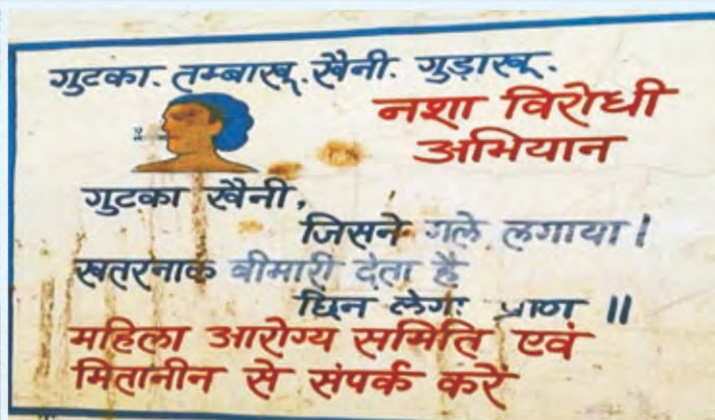 गुटका. तम्बाखू. खैनी. गुड़ाखू.
नशा विरोधी
अभियान
गुटका खैनी,
जिसने गले लगाया।
खतरनाक बीमारी देता है
छिन लेगा प्राण ॥
महिला आरोग्य समिति एवं
मितानीन से संपर्क करें